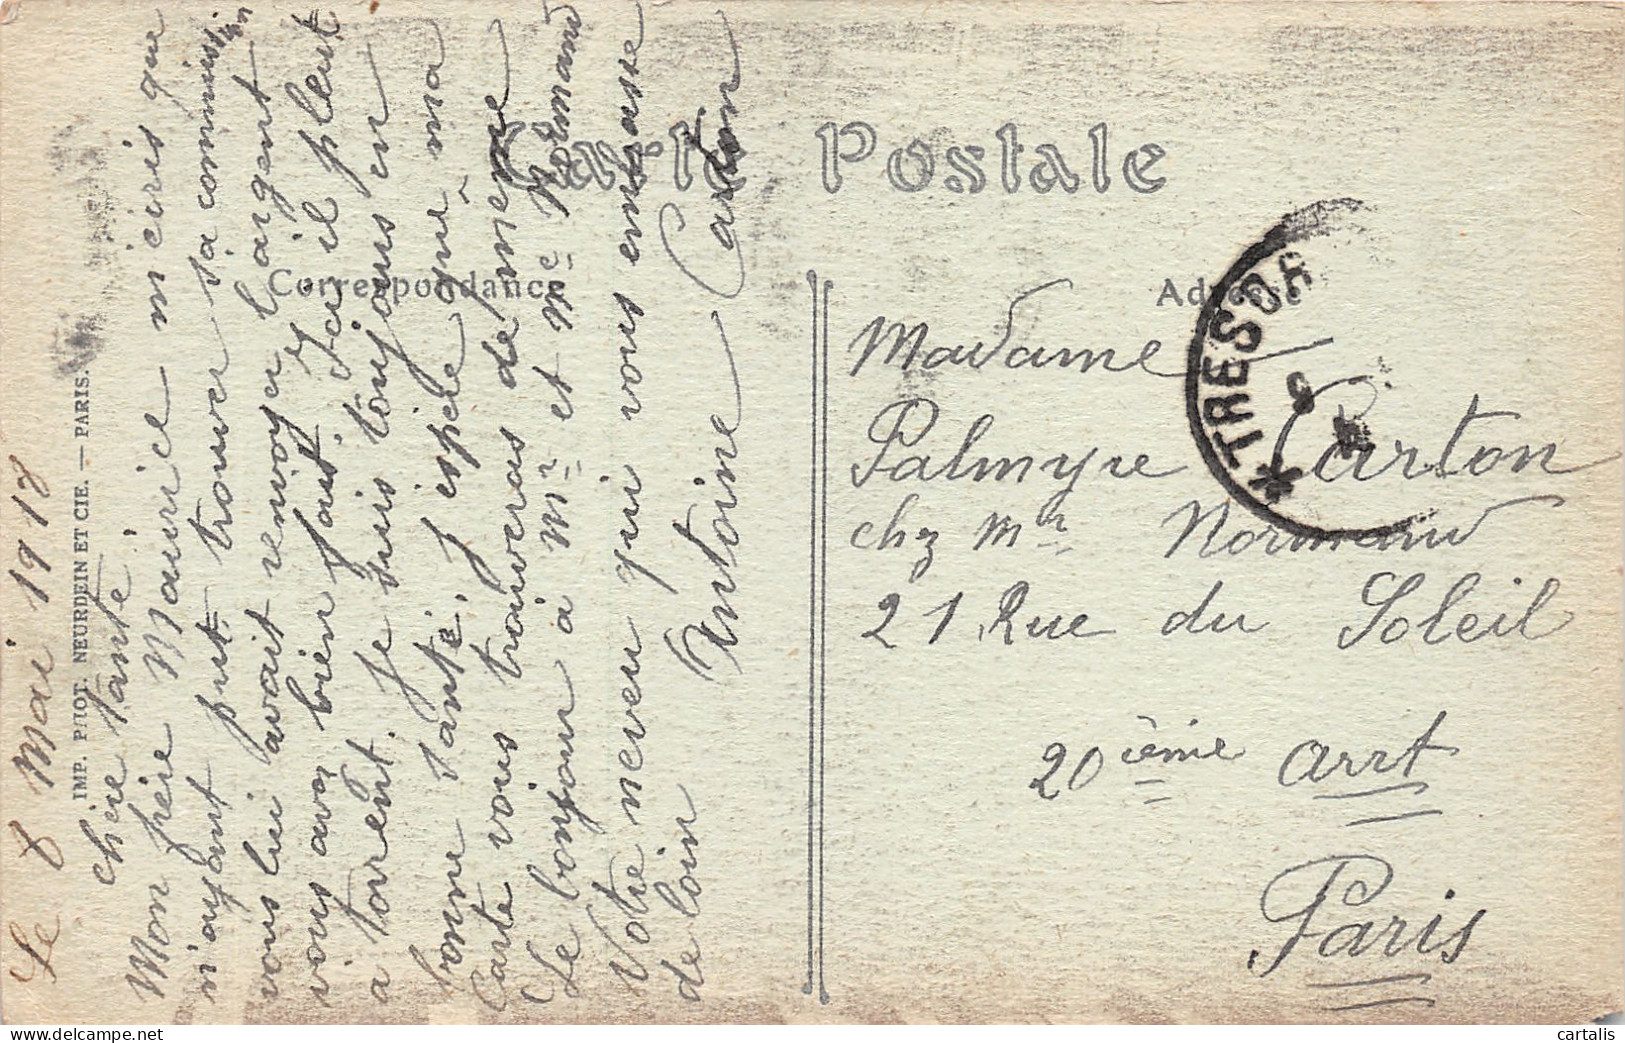 Le 8 Mai 1918
chère Tante.
Mon père Maurice m'écris que
n'ayant put trouver sa commission
vous lui avait renvoyer l'argent
vous avez bien fait. Ici il pleut
a torrent. Je suis toujours en
bonne santé, j'espère que ma
Carte vous trouveras de même
Le bonjour à Mr et Me Normand
Votre neveu qui vous embrasse
de loin
Antoine Carton
IMP. PHOT. NEURDEIN ET CIE. — PARIS.
Carte Postale
Correspondance
Adresse
TRESOR
9
Madame
Palmyre Carton
chz Mr Normand
21 Rue du Soleil
20ième arrt
Paris
cartalis